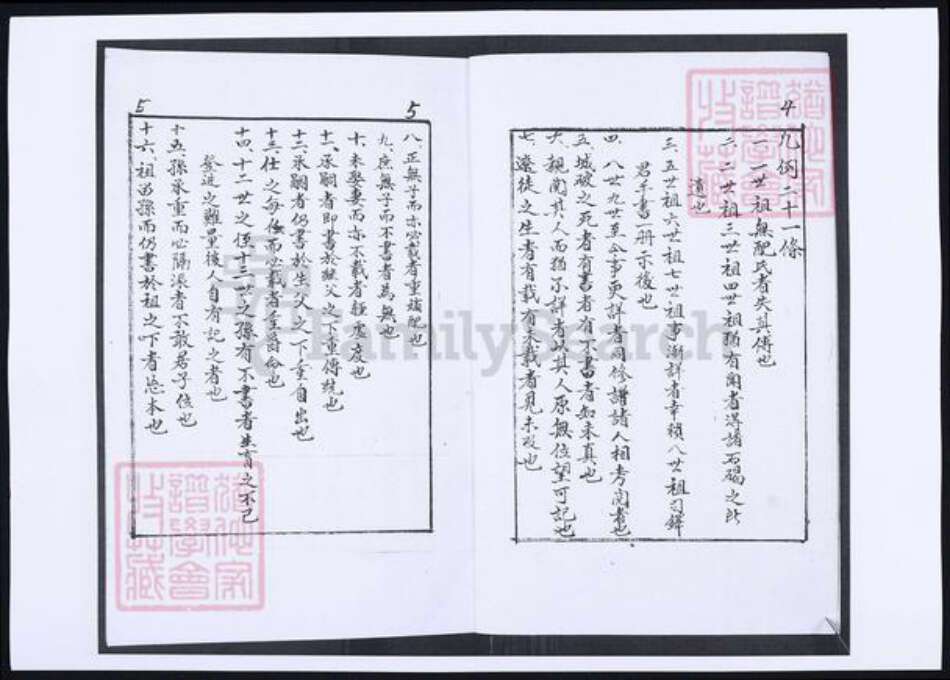 4
凡例二十一條
一、一世祖無配氏者失其傳也
二、二世祖三世祖四世祖猶有聞者得諸石碣之所
遺也
三、五世祖六世祖七世祖事漸詳者幸賴八世祖司鐸
君手書一冊示後也
四、八世九世至今事更詳者同修譜諸人相考閱者也
五、城破之死者有書者有不書者知未真也
六、親聞其人而猶不詳者以其人原無位望可記也
七、遷徙之生者有載有未載者見未及也
5
八、正無子而亦必載者重嫡配也
九、庶無子而不書者為無也
十、未娶妻而亦不載者難度也
十一、承嗣者即書於繼父之下重傳統也
十二、承嗣者仍書於生父之下重自出也
十三、仕之每任而必載者重爵命也
十四、十二世之任十三世之孫有不書者生育之不已
登進之難量後人自有記之者也
十五、孫承重而必隔派者不敢君子位也
十六、祖留孫而仍書於祖之下者忘本也
5
FamilySearch
譜學會
收藏